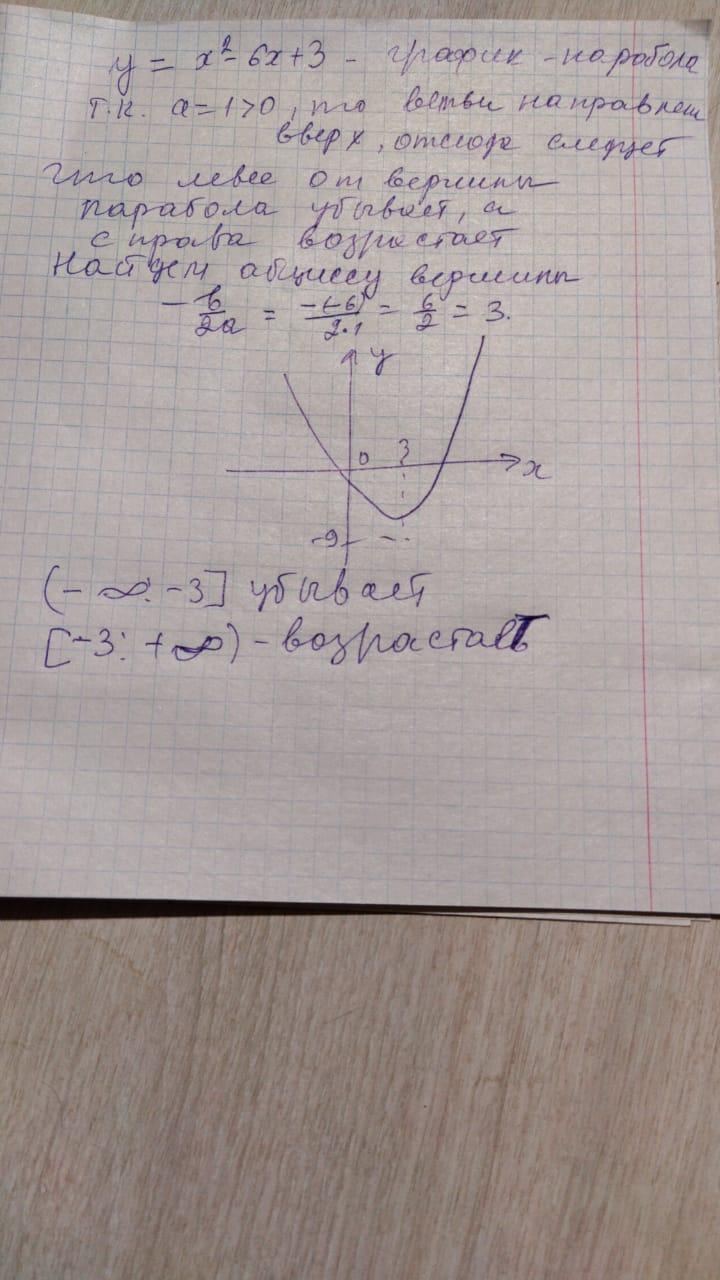 y = x² - 6x + 3 - график - парабола
т.к. a = 1 > 0, то ветви направлен
вверх, отсюда следует
что левее от вершины
парабола убывает, а
справа возрастает
Найдем абциссу вершины
-b/2a = -(-6)/2·1 = 6/2 = 3.
y
0 3
x
-9
(-∞; -3] убывает
[-3; +∞) - возрастает